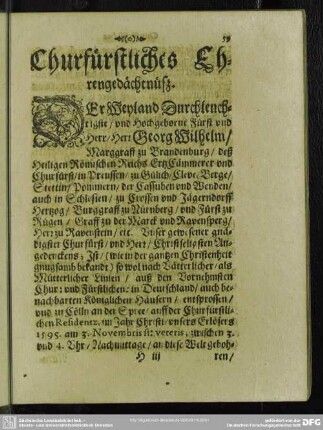 59
Churfürstliches Eh-
rengedächtnüß.
DEr Weyland Durchleuch-
tigste / vnd Hochgeborne Fürst vnd
Herr / Herr Georg Wilhelm /
Marggraff zu Brandenburg / deß
Heiligen Römischen Reichs Ertz Cämmerer vnd
Churfürst / in Preussen / zu Gülich / Cleve / Berge /
Stettin / Pommern / der Cassuben vnd Wenden /
auch in Schlesien / zu Crossen vnd Jägerndorff
Hertzog / Burggraff zu Nürnberg / vnd Fürst zu
Rügen / Graff zu der Marck vnd Ravensperg /
Herr zu Ravenstein / etc. Vnser gewesener gnä-
digster Churfürst / vnd Herr / Christseligsten An-
gedenckens; Ist / (wie in der gantzen Christenheit
gnugsamb bekandt) so wol nach Vätterlicher / als
Mütterlicher Linien / auß den Vornehmsten
Chur: vnd Fürstlichen: in Deutschland / auch be-
nachbarten Königlichen Häusern / entsprossen /
vnd in Cölln an der Spree / auff der Churfürstli-
chen Residentz. im Jahr Christi / vnsers Erlösers
1595. am 3. Novembris st: veteris, zwischen 3.
vnd 4. Vhr / Nachmittage / an diese Welt geboh-
H iij
ren /